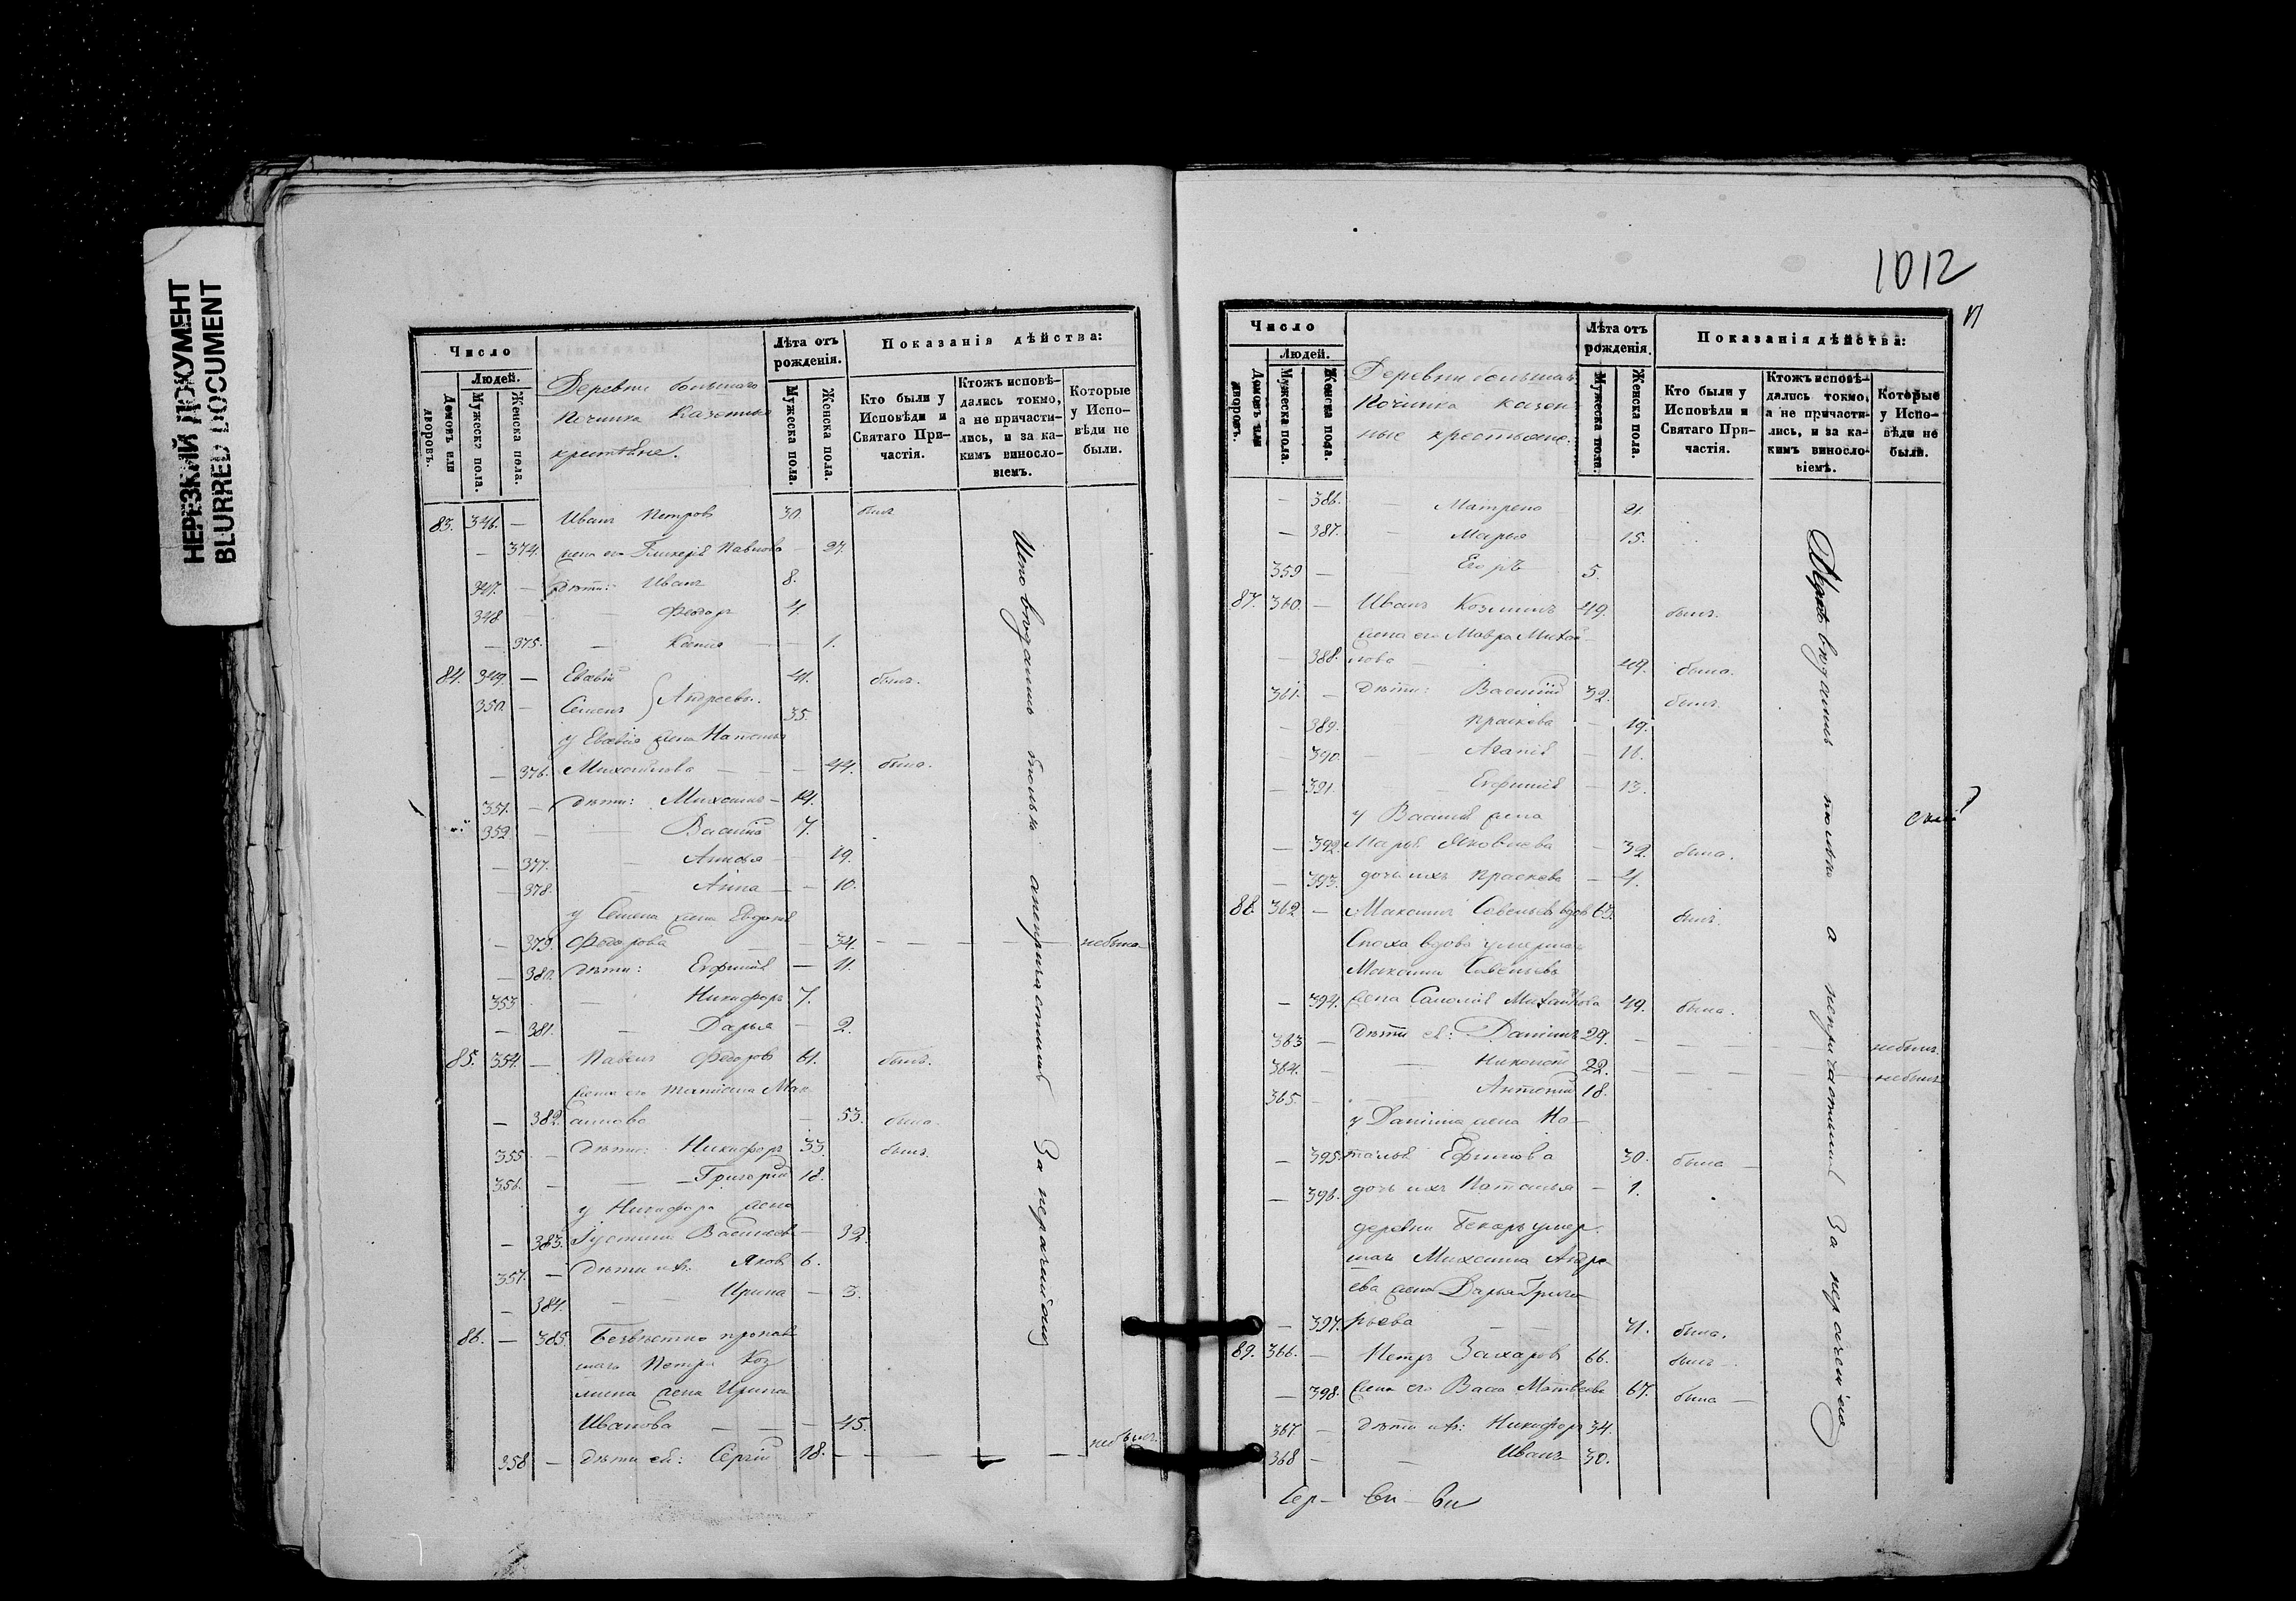 НЕРЕЗКИЙ ДОКУМЕНТ
BLURRED DOCUMENT
Число
Людей.
Домовъ или дворовъ.
Мужеска пола.
Женска пола.
Деревни большаго
Починка Казенные
крестьяне.
Лѣта отъ рожденія.
Мужеска пола.
Женска пола.
Показанія дѣйства:
Кто были у Исповѣди и Святаго Причастія.
Ктожъ исповѣдались токмо, а не причастились, и за какимъ винословіемъ.
Которые у Исповѣди не были.
83. 346. — Иванъ Петровъ 30. былъ
— 374. жена его Гликерія Павлова — 27.
347. — дѣти: Иванъ 8.
348 — Феодоръ 4
— 375. — — 1.
84. 349. — Евсѣвій 41. былъ.
350. — Семенъ } Андреевы. 35.
у Евсѣвія жена Наталья
— 376. Михайлова — — — 44. была.
351. — дѣти: Михаилъ — 14.
352 — — Василій 7.
— 377. — — 19.
— 378. — Анна — — 10.
у Семена жена Евдокія
— 379. Федорова — — 34. — — — — небыла
— 380. дѣти: Евфимія — 11.
353 — Никифоръ 7.
— 381. — Дарья — 2.
85. 354. — Павелъ Федоровъ 61. былъ.
жена его Татіана Мак
— 382. симова — 53. была.
355 — дѣти: Никифоръ 33. былъ.
356. — — Григорій 18.
у Никифора жена
— 383. Іустина Васильева — 32.
357. — дѣти ихъ: Яковъ 6.
— 384. — — Ирина — 3.
86. — 385. Безвѣстно пропав
шаго Петра Коз
мина жена Ирина
Иванова — — — 45.
358 — дѣти ей: Сергій 18. — — — — небылъ
Исповѣдались только а непричастились За нерачиіемъ
1012
Число
Людей.
Домовъ или дворовъ.
Мужеска пола.
Женска пола.
Деревни большаго
Починка казен
ные крестьяне.
Лѣта отъ рожденія.
Мужеска пола.
Женска пола.
Показанія дѣйства:
Кто были у Исповѣди и Святаго Причастія.
Ктожъ исповѣдались токмо, а не причастились, и за какимъ винословіемъ.
Которые у Исповѣди не были.
— 386. — Матрена 21
— 387. — Марья 15.
359 — — Егоръ 5.
87. 360. — Иванъ Козминъ 49. былъ.
жена его Мавра Михай
— 388. лова — — 49. была.
361. — дѣти: Василій 32. былъ
— 389. Праскева — 19.
— 390. — Агапія — 16.
— 391. Евфимія — 13.
у Василія жена
— 392. Марья Яковлева — 32. была.
— 393. дочь ихъ Праскева — 4.
88. 362 — Максимъ Савельевъ вдов 62. былъ.
Сноха вдова умершаго
Максима Савельевъ
— 394. жена Саломія Михайлова 49. была.
363 — дѣти ея: Даніилъ 29. — — — — небылъ
364. — — Николай 22. — — — — небылъ
365. — — Антоній 18.
у Даніила жена На—
— 395. талья Ефимова 30. была —
— 396. дочь ихъ Наталья — 1.
деревни Бекарь умер
шаго Михаила Андре
ева жена Дарья Григо
— 397. рьева — — 71. была.
89. 366. — Петръ Захаровъ 66. былъ —
— 398. жена его Васса Матвеева 67. была —
367 — дѣти ихъ: Никифоръ 34.
368 — — Иванъ 30.
Исповѣдались только а непричастились За нераченіемъ